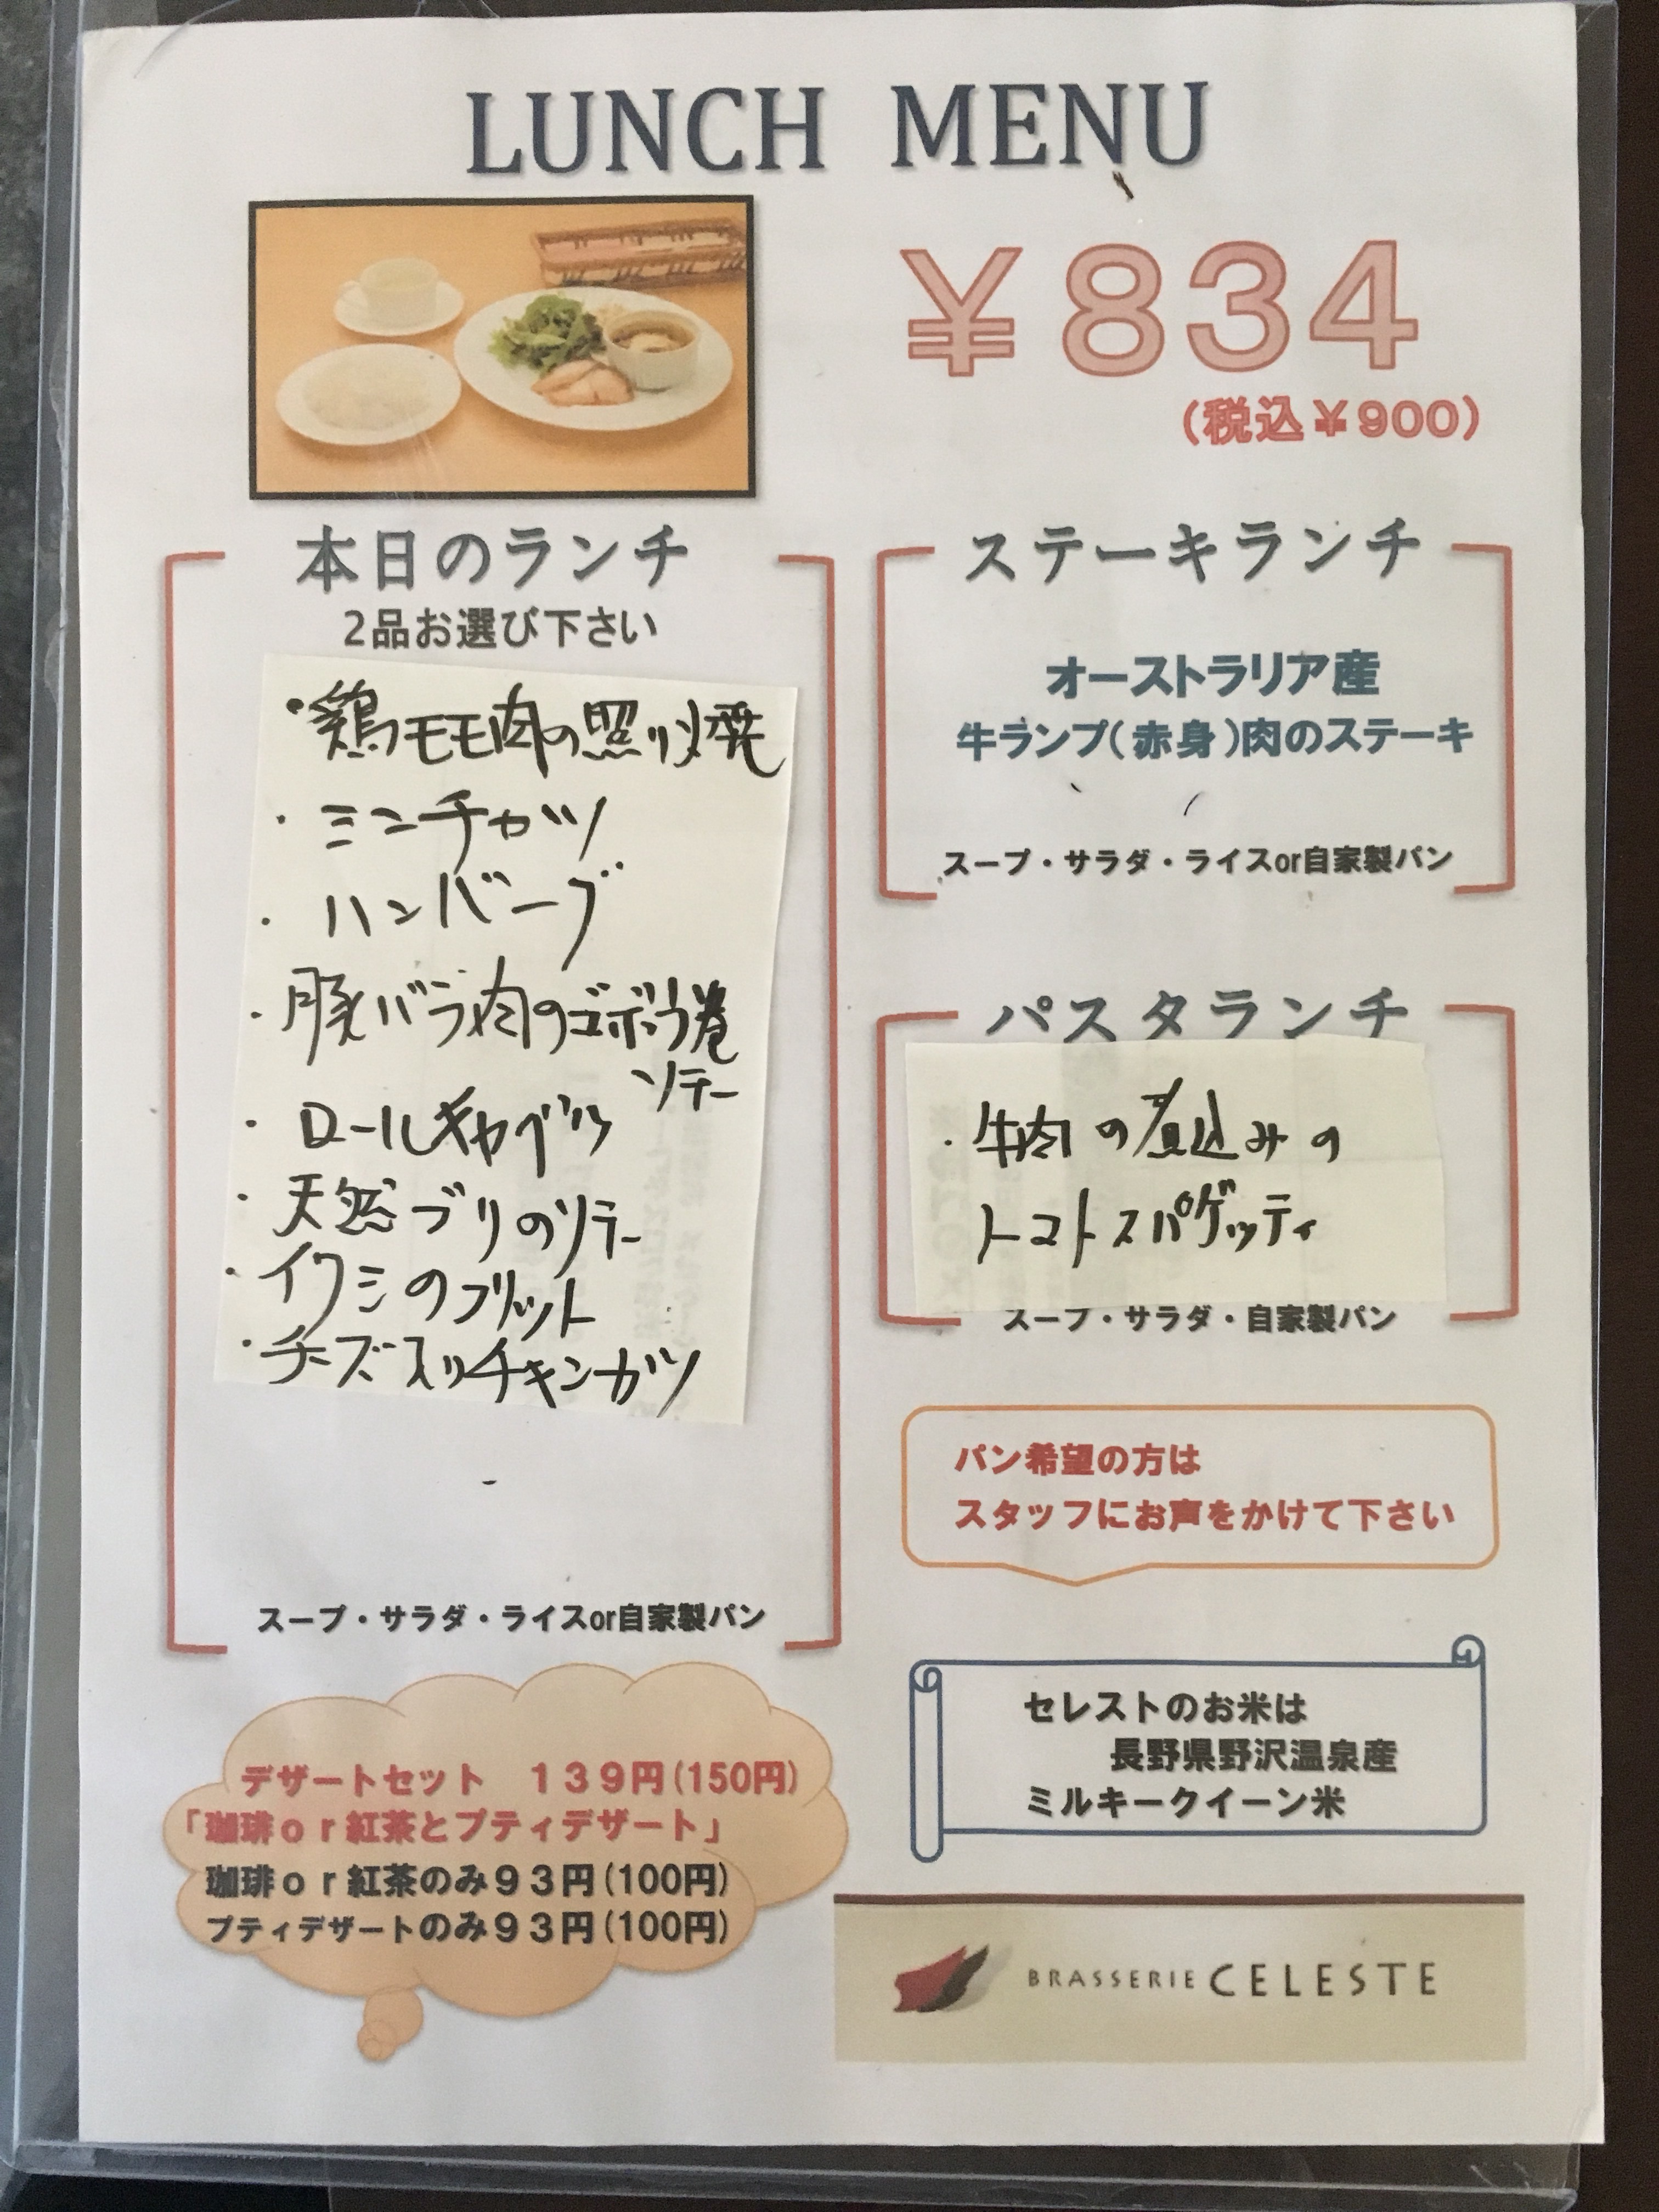 LUNCH MENU
￥834
(税込￥900)
本日のランチ
2品お選び下さい
・鶏モモ肉の照り焼
・ミンチカツ
・ハンバーグ
・豚バラ肉のゴボウ巻
ソテー
・ロールキャベツ
・天然ブリのソテー
・イワシのフリット
・チーズ入りチキンカツ
スープ・サラダ・ライスor自家製パン
ステーキランチ
オーストラリア産
牛ランプ(赤身)肉のステーキ
スープ・サラダ・ライスor自家製パン
パスタランチ
・牛肉の煮込みの
トマトスパゲッティ
スープ・サラダ・自家製パン
パン希望の方は
スタッフにお声をかけて下さい
デザートセット 139円(150円)
「珈琲or紅茶とプティデザート」
珈琲or紅茶のみ93円(100円)
プティデザートのみ93円(100円)
セレストのお米は
長野県野沢温泉産
ミルキークイーン米
BRASSERIE CELESTE